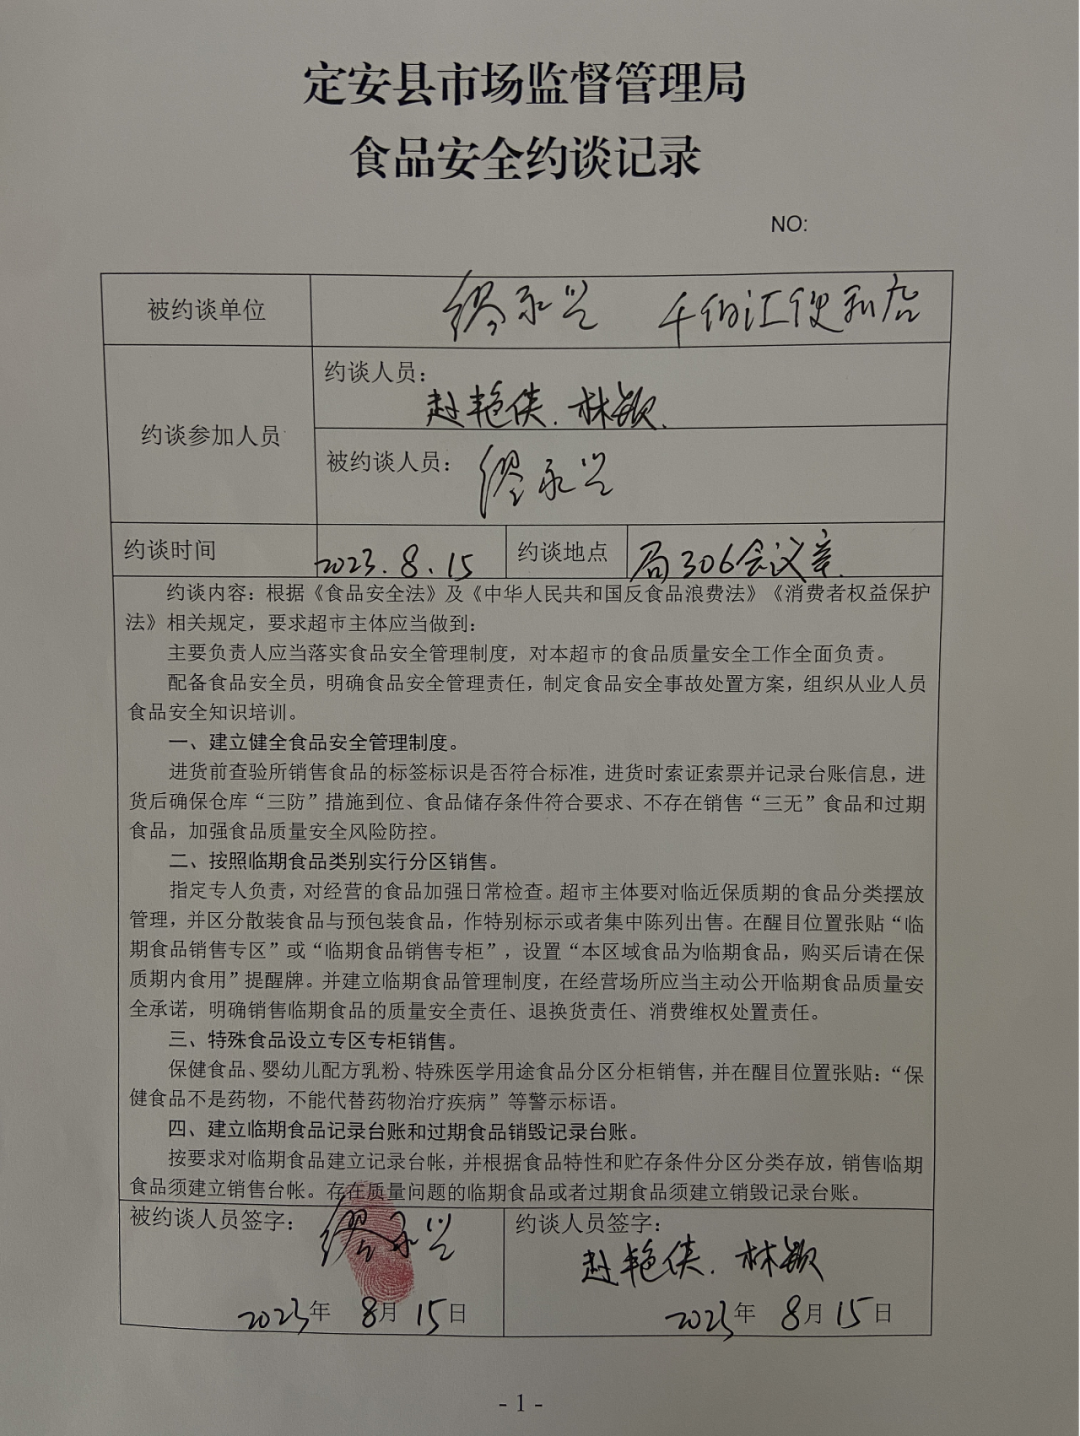 定安县市场监督管理局
食品安全约谈记录
NO:
被约谈单位 缪永兴 千佰汇便利店
约谈人员：
赵艳侠.林颖.
约谈参加人员
被约谈人员：缪永兴
约谈时间 2023.8.15 约谈地点 局306会议室.
约谈内容：根据《食品安全法》及《中华人民共和国反食品浪费法》《消费者权益保护
法》相关规定，要求超市主体应当做到：
主要负责人应当落实食品安全管理制度，对本超市的食品质量安全工作全面负责。
配备食品安全员，明确食品安全管理责任，制定食品安全事故处置方案，组织从业人员
食品安全知识培训。
一、建立健全食品安全管理制度。
进货前查验所销售食品的标签标识是否符合标准，进货时索证索票并记录台账信息，进
货后确保仓库“三防”措施到位、食品储存条件符合要求、不存在销售“三无”食品和过期
食品，加强食品质量安全风险防控。
二、按照临期食品类别实行分区销售。
指定专人负责，对经营的食品加强日常检查。超市主体要对临近保质期的食品分类摆放
管理，并区分散装食品与预包装食品，作特别标示或者集中陈列出售。在醒目位置张贴“临
期食品销售专区”或“临期食品销售专柜”，设置“本区域食品为临期食品，购买后请在保
质期内食用”提醒牌。并建立临期食品管理制度，在经营场所应当主动公开临期食品质量安
全承诺，明确销售临期食品的质量安全责任、退换货责任、消费维权处置责任。
三、特殊食品设立专区专柜销售。
保健食品、婴幼儿配方乳粉、特殊医学用途食品分区分柜销售，并在醒目位置张贴：“保
健食品不是药物，不能代替药物治疗疾病”等警示标语。
四、建立临期食品记录台账和过期食品销毁记录台账。
按要求对临期食品建立记录台帐，并根据食品特性和贮存条件分区分类存放，销售临期
食品须建立销售台帐。存在质量问题的临期食品或者过期食品须建立销毁记录台账。
被约谈人员签字：缪永兴
2023年 8月15日
约谈人员签字：
赵艳侠.林颖
2023年 8月15日
- 1 -